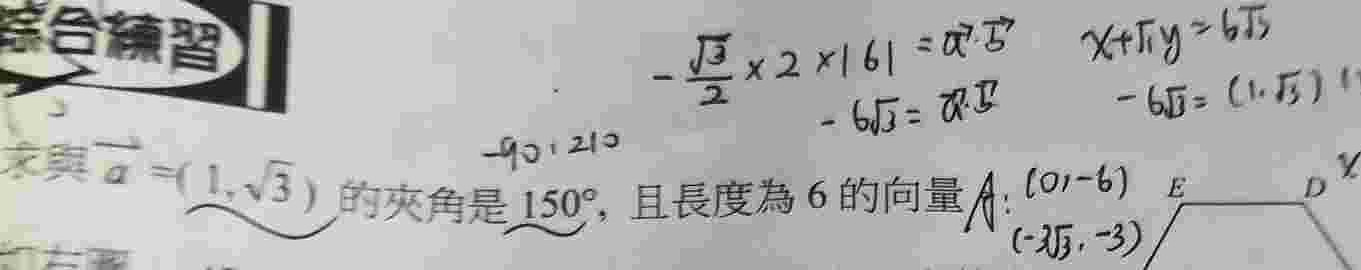 綜合練習
-√3/2 × 2 × |6| = a⃗·b⃗
x+√3y=6√3
-6√3 = a⃗·b⃗
-6√3 = (1,√3)
-90,210
求與 a⃗ =(1,√3) 的夾角是 150°, 且長度為 6 的向量 A: (0,-6)
(-3√3,-3)
E D